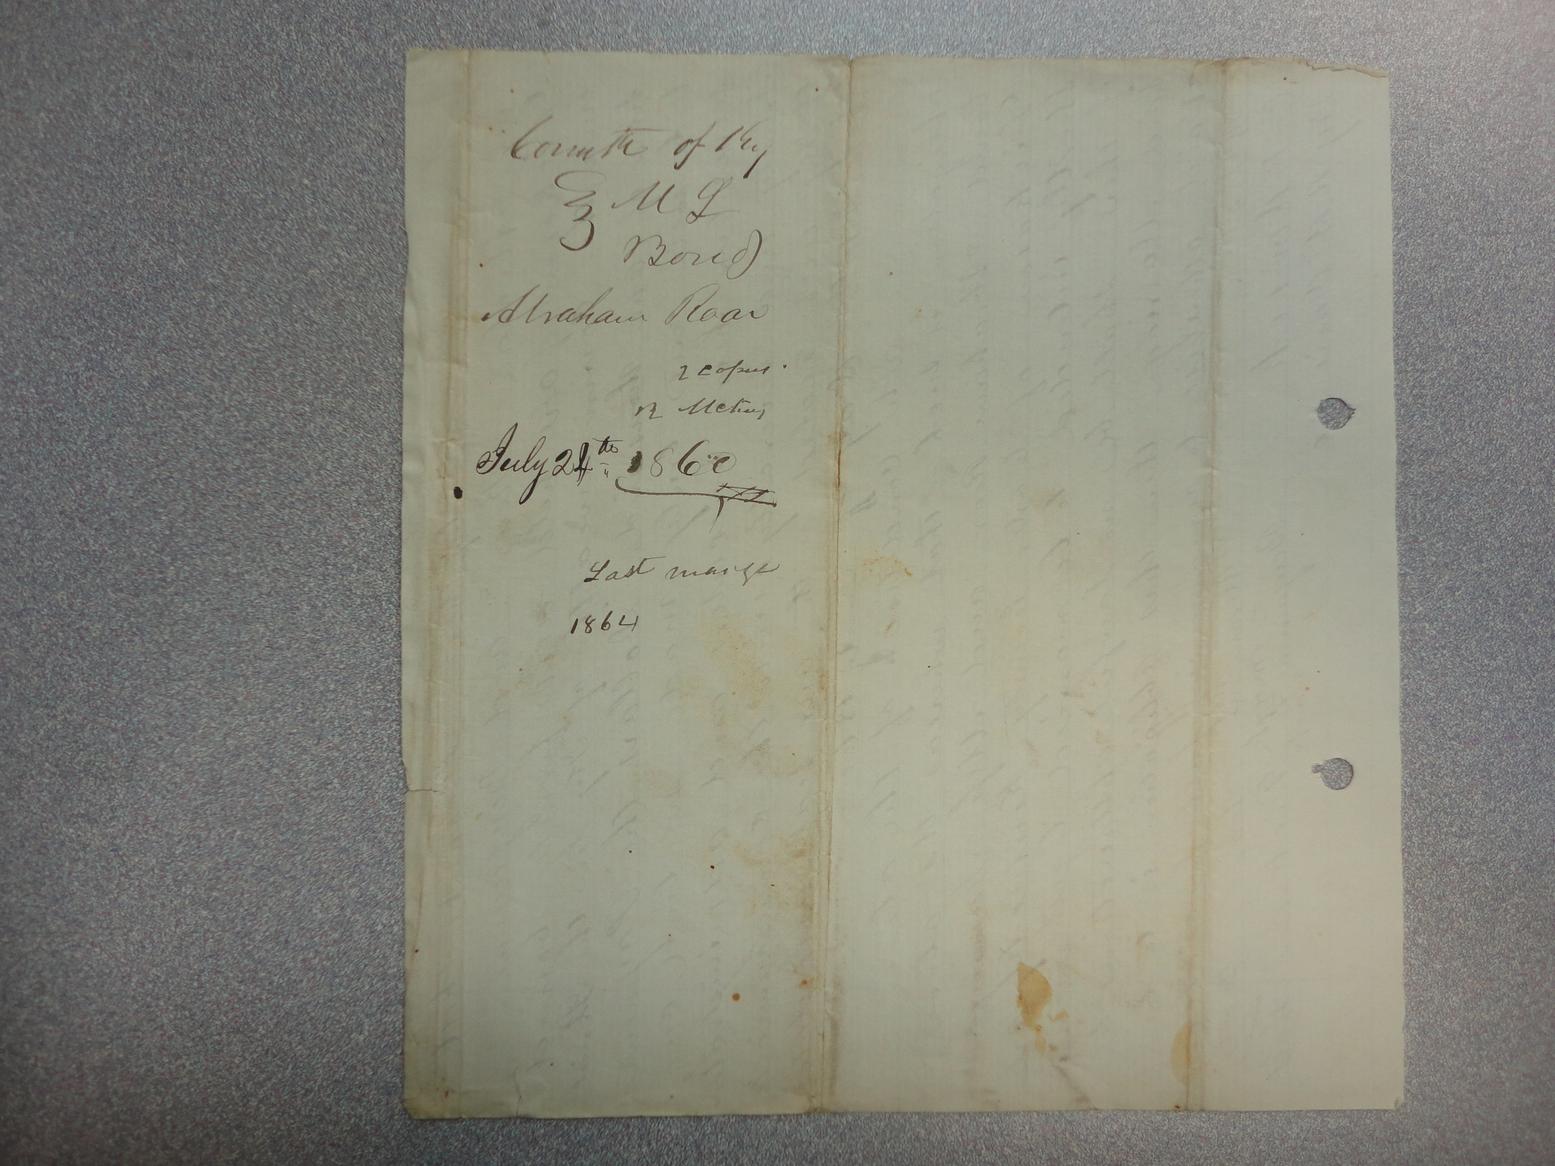 Comth of Ky
M L
Bond
Abraham Roar
2 copies.
July 24th 1860
Last marige
1864